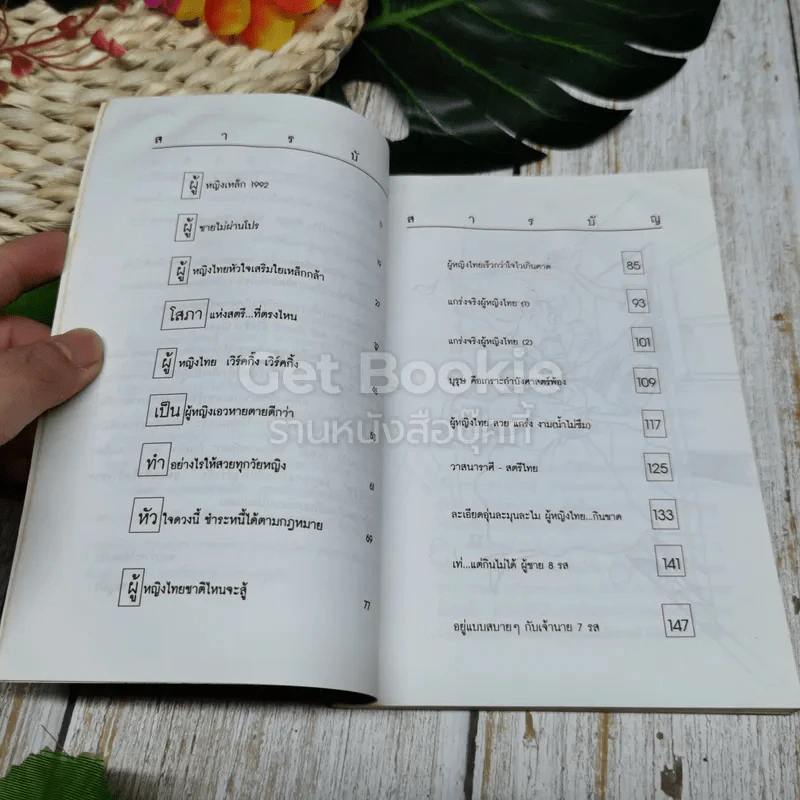 ส า ร บั
ผู้หญิงเหล็ก 1992
ผู้ชายไม่ผ่านโปร
ผู้หญิงไทยหัวใจเสริมใยเหล็กกล้า
โสภาแห่งสตรี...ที่ตรงไหน
ผู้หญิงไทย เวิร์คกิ้ง เวิร์คกิ้ง
เป็นผู้หญิงเอวหายตายดีกว่า
ทำอย่างไรให้สวยทุกวัยหญิง 61
หัวใจดวงนี้ ชำระหนี้ได้ตามกฎหมาย 69
ผู้หญิงไทยชาติไหนจะสู้ 77
ส า ร บั ญ
ผู้หญิงไทยเร็วกว่าใจไวเกินคาด 85
แกร่งจริงผู้หญิงไทย (1) 93
แกร่งจริงผู้หญิงไทย (2) 101
บุรุษ คือเกราะกำบังศาสตร์พ้อง 109
ผู้หญิงไทย สวย แกร่ง งาม(น้ำไม่ซึม) 117
วาสนาราศี - สตรีไทย 125
ละเอียดอุ่นละมุนละไม ผู้หญิงไทย...กินขาด 133
เท่...แต่กินไม่ได้ ผู้ชาย 8 รส 141
อยู่แบบสบายๆ กับเจ้านาย 7 รส 147
Get Bookie
ร้านหนังสือบุ๊คกี้